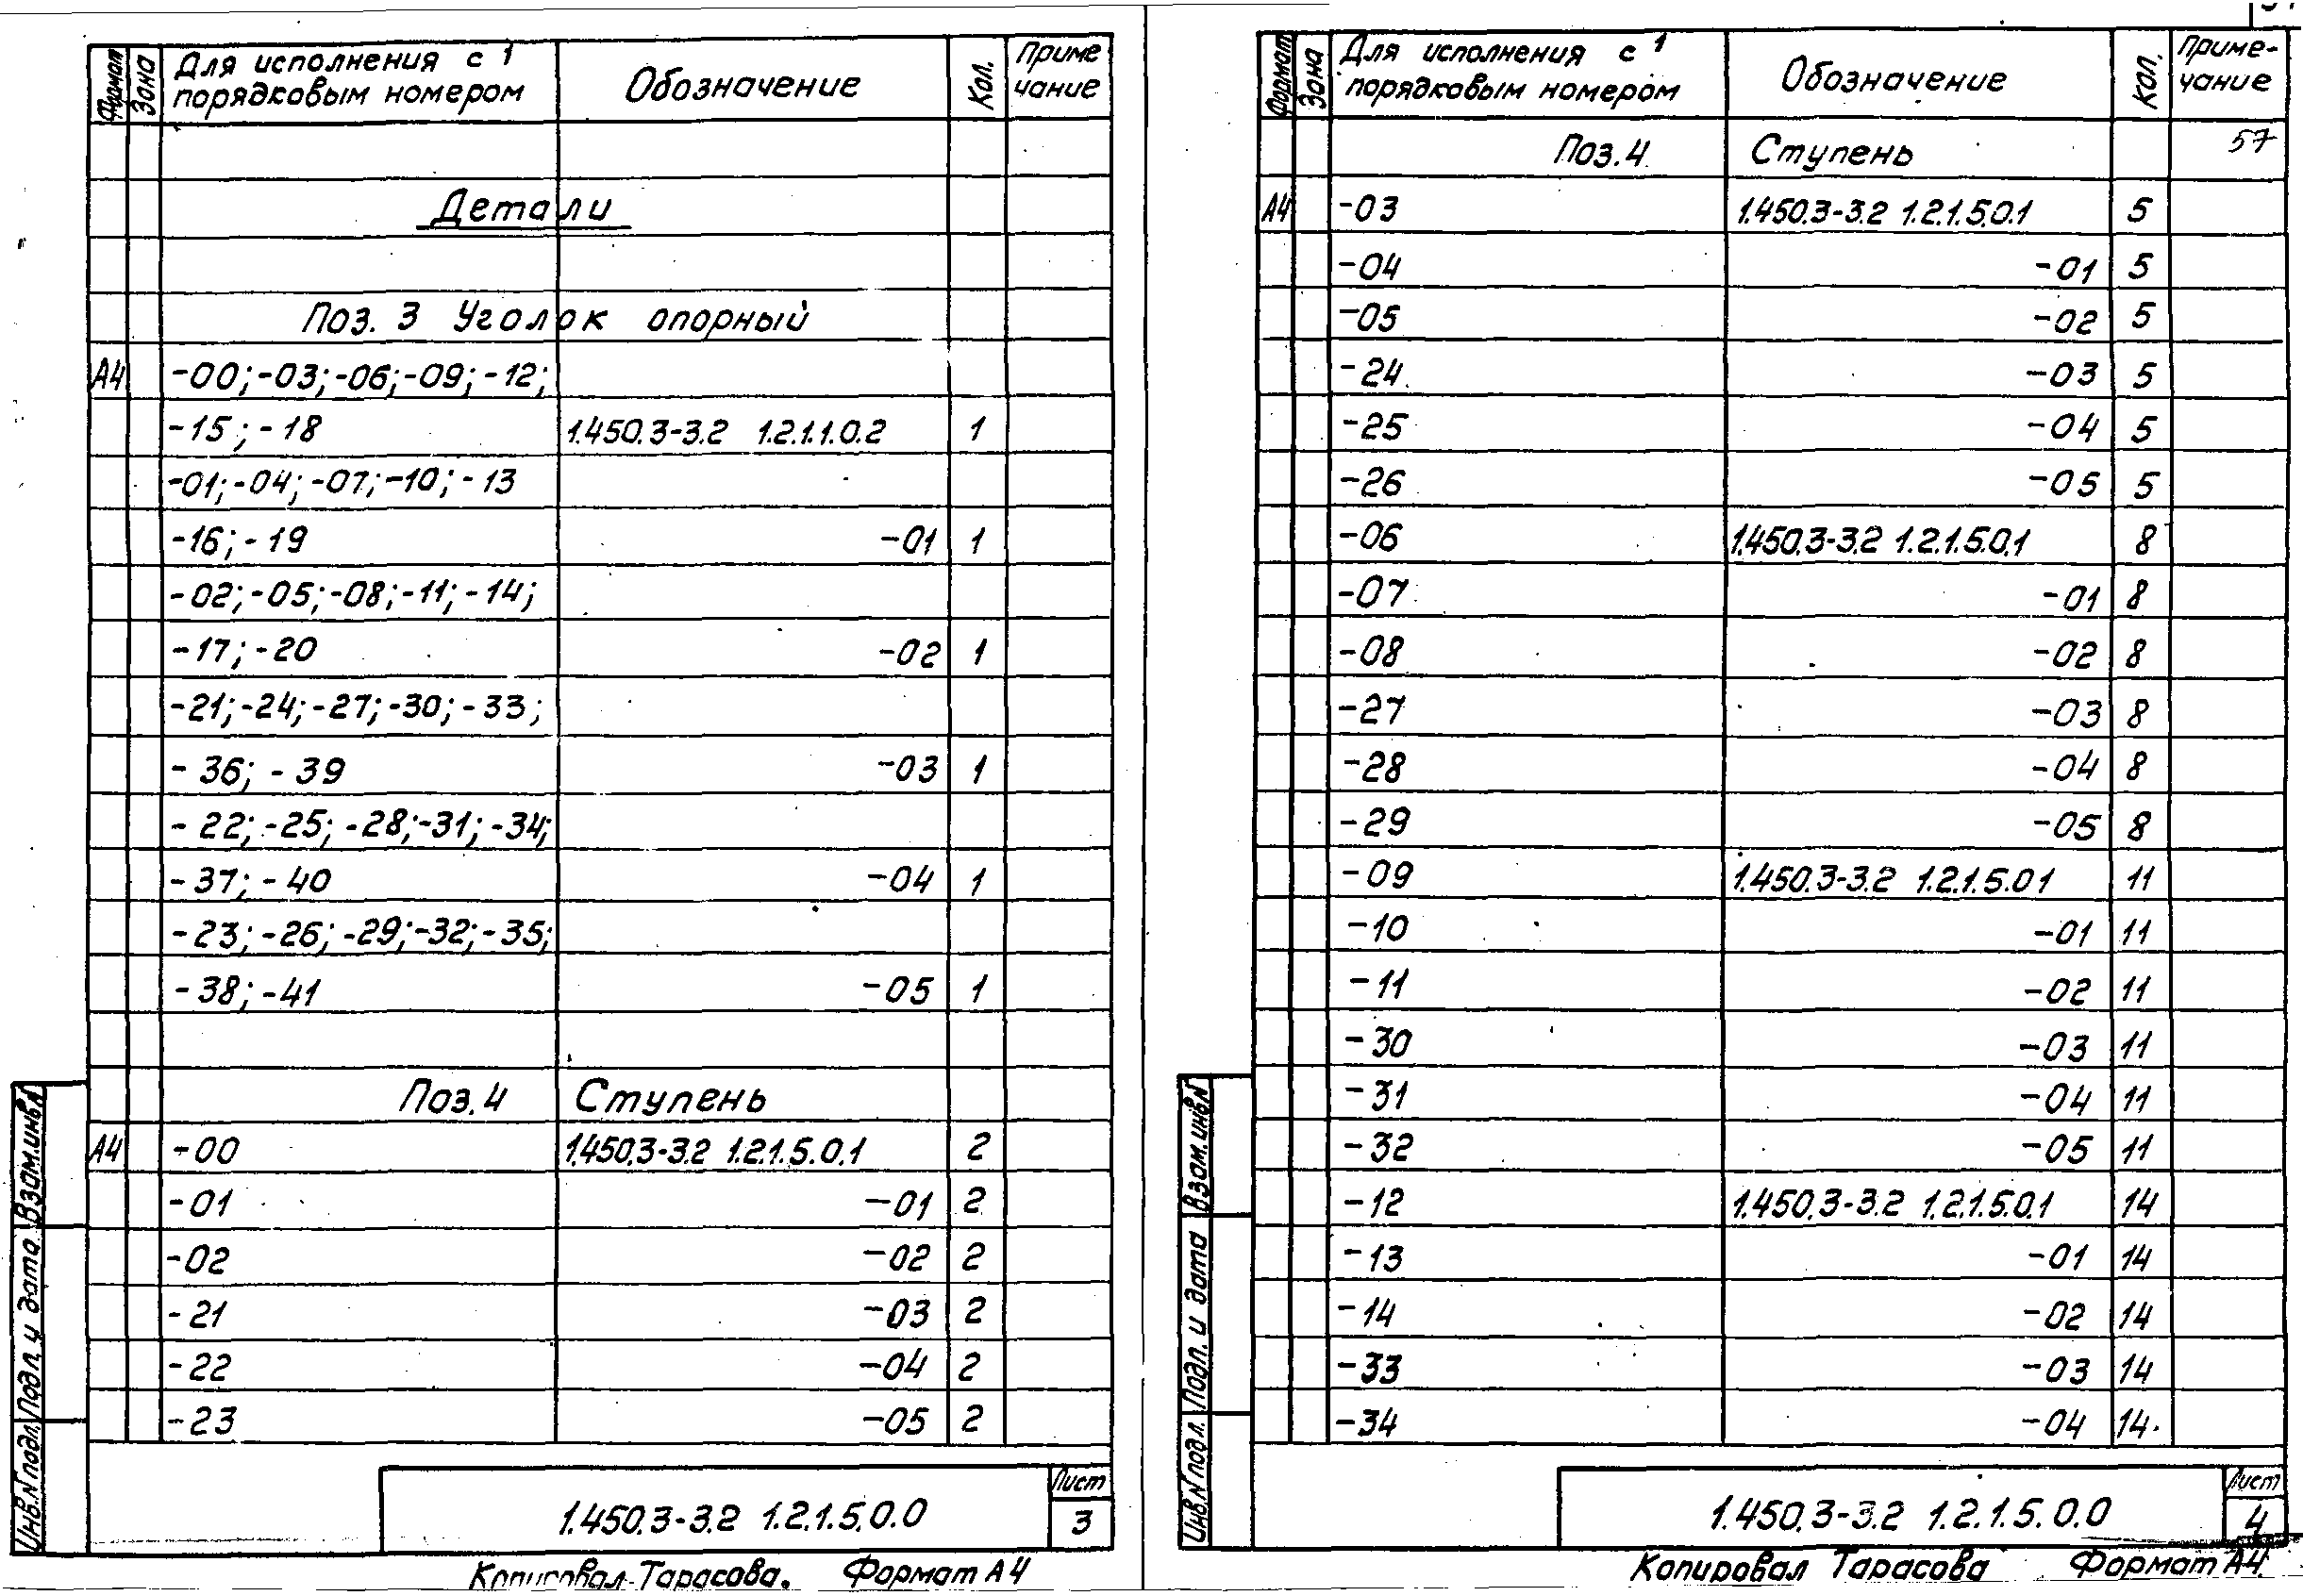 Формат
Зона
Для исполнения с 1
порядковым номером
Обозначение
Кол.
Приме
чание
Детали
Поз. 3 Уголок опорный
А4 -00; -03; -06; -09; -12;
-15; -18 1.450.3-3.2 1.2.1.1.0.2 1
-01; -04; -07; -10; -13
-16; -19 -01 1
-02; -05; -08; -11; -14;
-17; -20 -02 1
-21; -24; -27; -30; -33;
-36; -39 -03 1
-22; -25; -28; -31; -34;
-37; -40 -04 1
-23; -26; -29; -32; -35;
-38; -41 -05 1
Поз.4 Ступень
А4 -00 1.450.3-3.2 1.2.1.5.0.1 2
-01 -01 2
-02 -02 2
-21 -03 2
-22 -04 2
-23 -05 2
Взам.инв.N
Подл. и дата
Инв.N подл.
1.450.3-3.2 1.2.1.5.0.0
Лист
3
Копировал Тарасова. Формат А4
Формат
Зона
Для исполнения с 1
порядковым номером
Обозначение
Кол.
Приме-
чание
Поз.4 Ступень 57
А4 -03 1.450.3-3.2 1.2.1.5.0.1 5
-04 -01 5
-05 -02 5
-24 -03 5
-25 -04 5
-26 -05 5
-06 1.450.3-3.2 1.2.1.5.0.1 8
-07 -01 8
-08 -02 8
-27 -03 8
-28 -04 8
-29 -05 8
-09 1.450.3-3.2 1.2.1.5.01 11
-10 -01 11
-11 -02 11
-30 -03 11
-31 -04 11
-32 -05 11
-12 1.450.3-3.2 1.2.1.5.0.1 14
-13 -01 14
-14 -02 14
-33 -03 14
-34 -04 14
Взам.инв.N
Подл. и дата
Инв.N подл.
1.450.3-3.2 1.2.1.5.0.0
Лист
4
Копировал Тарасова Формат А4